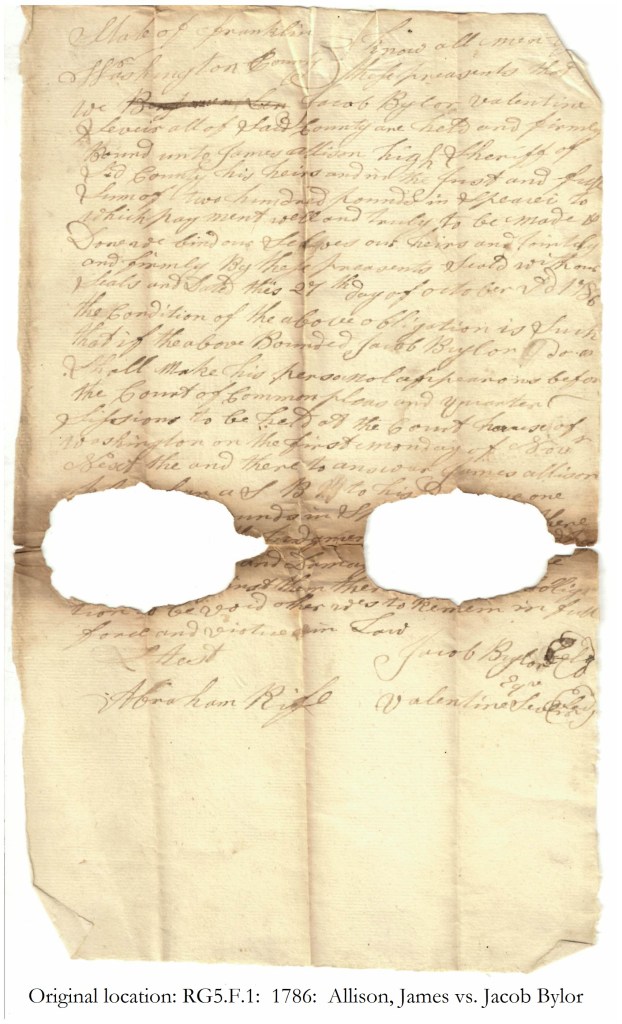 State of Franklin
Washington County
Know all men
these preasents that
we Jacob Bylor Valentine
Seveir all of Said County are held and firmly
Bound unto James allison high Sheriff of
Sd County his heirs and in the Just and full
Sum of two hundred pounds in Speaci to
which payment well and truly to be made &
Done we bind our Selves our heirs and Jointly
and firmly By these preasents Seald with our
Seals and Dated this 27th day of october 1786
the Condition of the above obligation is Such
that if the above Bounded Jacob Bylor
Shall make his personal appearans before
the Court of Common pleas and quarter
Sessions to be held at the Court hause of
Washington on the first monday of Nov
Next the and there to answar James allison
to his one
pounds in there
Judgment
and
then
tion to be void other ws to Remem in full
force and virtue in Law
Attest
Jacob Bylor
Abraham Rife
Valentine Sevier Esqr
Original location: RG5.F.1: 1786: Allison, James vs. Jacob Bylor